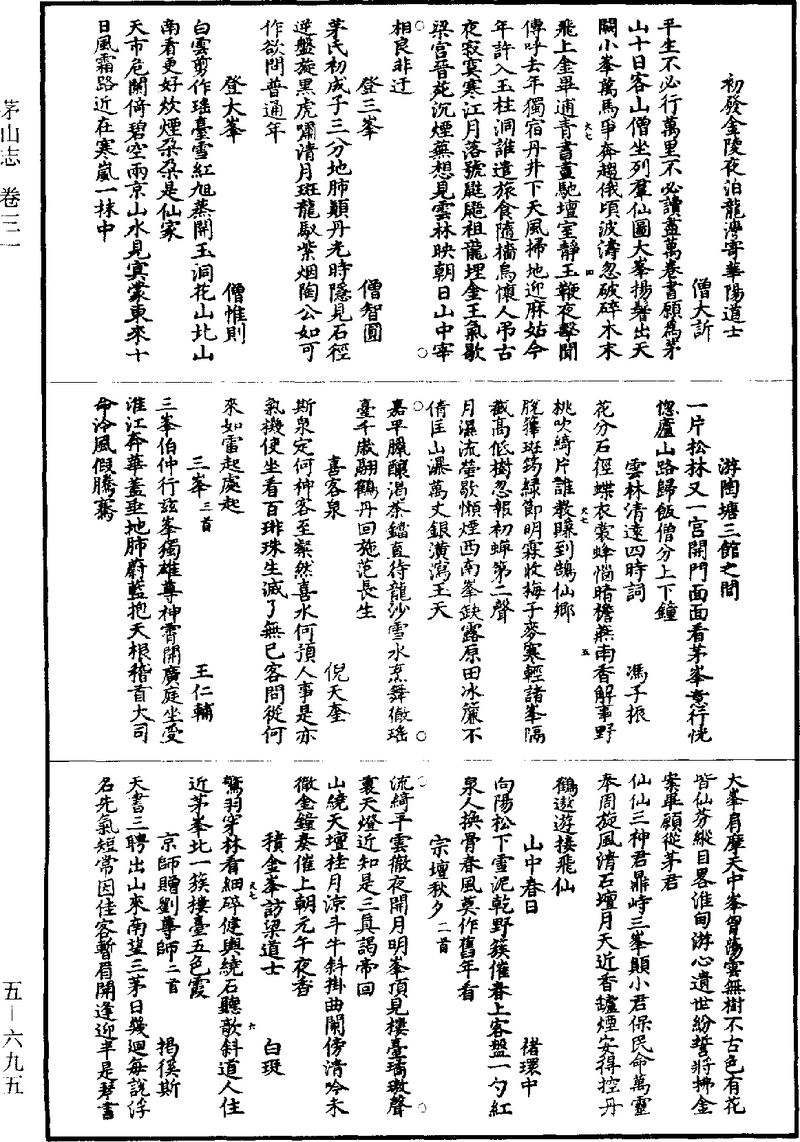 初發金陵夜泊龍灣寄華陽道士
僧大訢
平生不必行萬里不必讀盡萬卷書願為茅
山十日客山僧坐列羣仙圖大峯揚鬐出天
闕小峯萬馬爭奔趨俄頃波濤忽破碎木末
飛上金畢逋青書晝馳壇室靜玉鞭夜擊聞
傳呼去年獨宿丹井下天風掃地迎麻姑今
年許入玉柱洞誰遣旅食隨檣烏懷人弔古
夜寂寞寒江月落號鼪鼯祖龍埋金王氣歇
梁宮晉苑沉煙蕪想見雲林映朝日山中宰
相良非迂
登三峯
僧智圓
茅氏初成子三分地肺顛丹光時隱見石徑
逆盤旋黑虎嘯清月斑龍馭紫烟陶公如可
作欲問普通年
登大峯
僧惟則
白雲剪作瑶臺雪紅旭蒸開玉洞花山北山
南看更好炊煙朵朵是仙家
天市危闌倚碧空兩京山水見冥蒙東來十
日風霜路近在寒嵐一抹中
游陶塘三館之間
一片松林又一宮開門面面看茅峯意行恍
惚廬山路歸飯僧分上下鐘
雲林清遠四時詞
馮子振
花分石徑蝶衣裳蜂惱晴檐燕雨香解事野
桃吹綺片誰教賺到鵠仙鄉
脫籜斑筠綠節明霖收梅子麥寒輕諸峯隔
截高低樹忽報初蟬第二聲
月濕流螢歇懶煙西南峯缺露原田冰簾不
倩匡山瀑萬丈銀潢瀉玉天
嘉平臘釀渴茶鐺直待龍沙雪水烹舞徹瑶
臺千歲翮鶴丹回施范長生
喜客泉
倪天奎
斯泉定何神客至粲然喜水何預人事是亦
氣機使坐看百琲珠生滅了無已客問從何
來如雷起處起
三峯三首
王仁輔
三峯伯仲行兹峯獨雄尊神霄開廣庭坐受
淮江奔華蓋垂地肺蔚藍抱天根稽首大司
命泠風假騰騫
大峯肩摩天中峯曾蕩雲無樹不古色有花
皆仙芬縱目畧淮甸游心遺世紛誓將拂金
案畢願從茅君
仙仙三神君鼎峙三峯顛小君保民命萬靈
奉周旋風清石壇月天近香鑪煙安得控丹
鶴遨遊接飛仙
山中春日
褚環中
向陽松下雪泥乾野簇催春上客盤一勺紅
泉人換骨春風莫作舊年看
宗壇秋夕二首
流綺平雲徹夜開月明峯頂見樓臺璚璈聲
裏天燈近知是三真謁帝回
山繞天壇桂月涼斗牛斜掛曲闌傍清吟未
徹金鐘奏催上朝元午夜香
積金峯訪梁道士
白珽
驚羽穿林看細碎健輿繞石聽敧斜道人住
近茅峯北一簇樓臺五色霞
京師贈劉尊師二首
揭傒斯
天書三聘出山來南望三茅日幾迴每說浮
名先氣短常因佳客暫眉開逢迎半是琴書
茅山志 卷三一
五－六九五